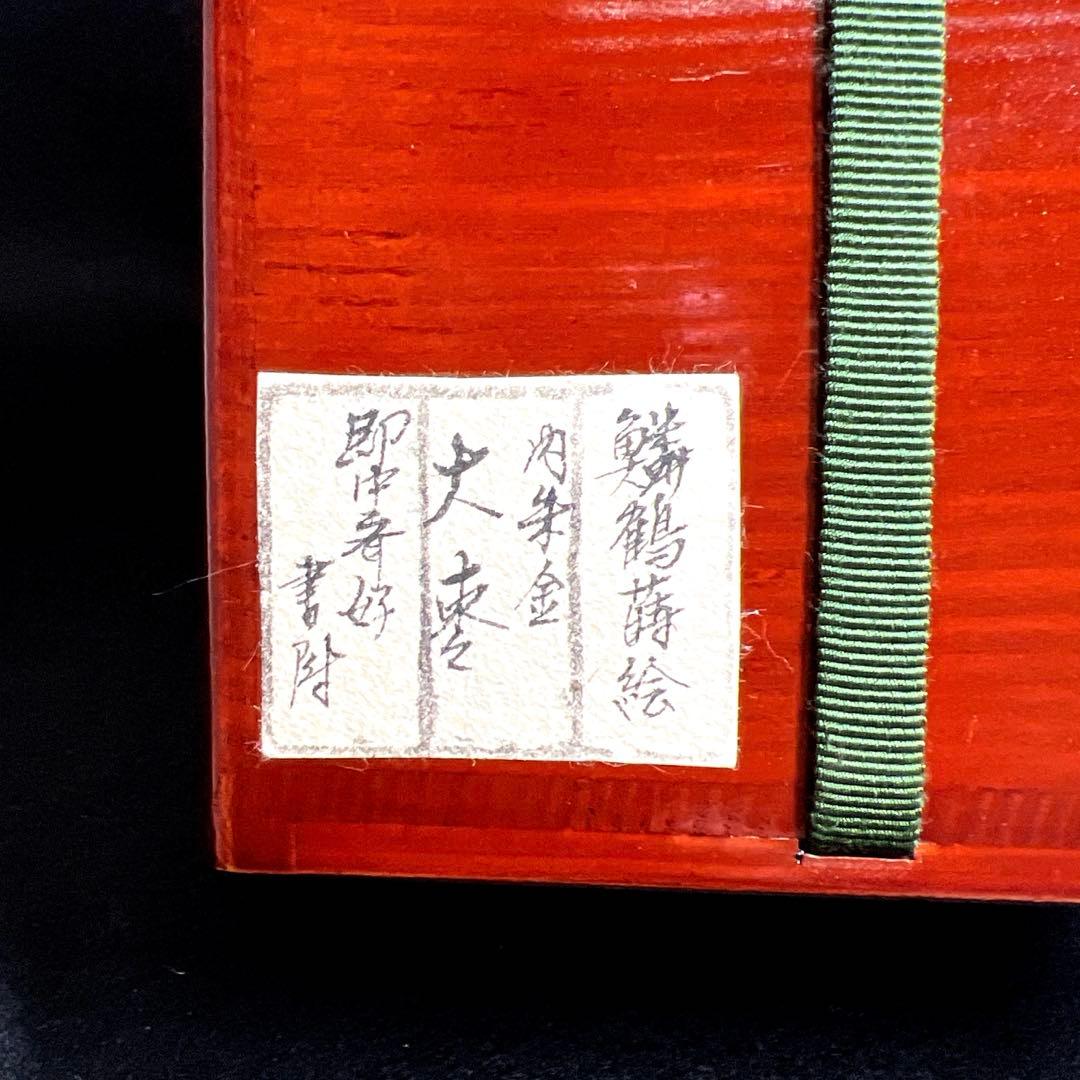 鱗鶴蒔絵
内朱金
大棗
即中斎好
書附